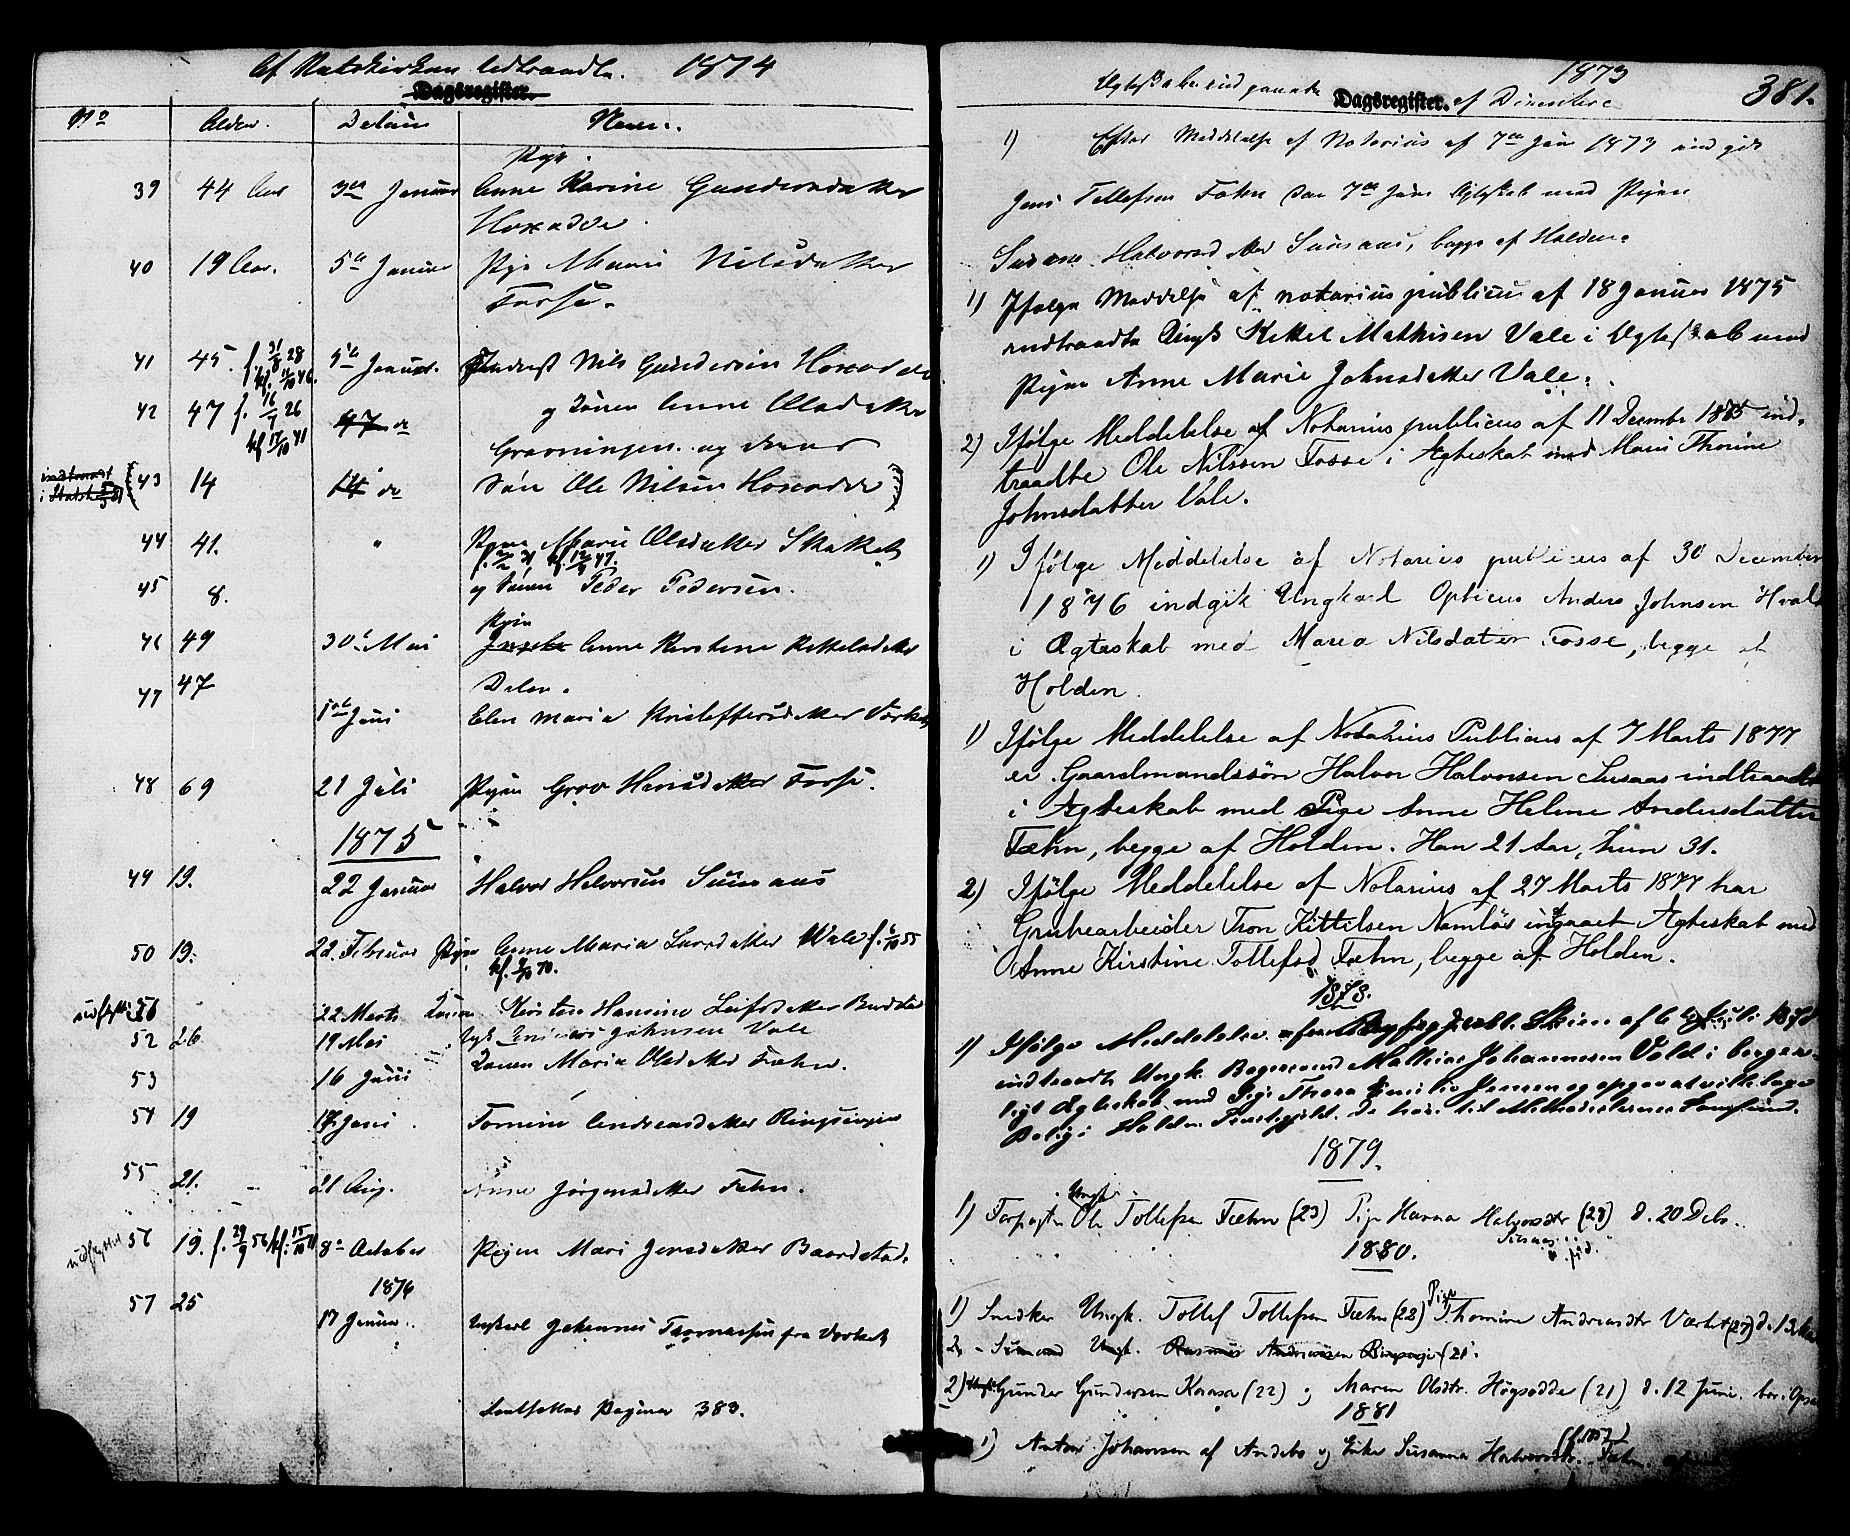 Af Statskirken udtraadte. 1874
Dagsregister.
No Alder. Datum Navn.
Pige.
39 44 Aar 3die Januar Anne Karine Gundersdatter
Hoxadde
40 19 Aar. 5te Januar Pige Maria Nilsdatter
Fosse.
41 45. f. 31/8 28 5te Januar. Nils Gundersen Hoxadde
kf. 11/10 46.
42 47 f. 16/7 26 47 do og Konen Anne Olsdatter
kf 17/10 41 Gravningen og deres
indtraadt
i Statsk
43 14 14 do Søn Ole Nilsen Hoxadde
44 41. " Pigen Marie Olsdatter Skakket
45 8. og Sønnen Peder Pedersen.
Pigen
46 49 30te Mai Anne Kirstine Kittelsdatter
Dalen.
47 47 1ste Juni Elen Maria Kristoffersdatter Værket
48 69 21 Juli Pigen Grov Hansdatter Fosse.
1875
49 19. 22 Januar Halvor Halvorsen Susaas
50 19. 22 Februar Pigen Anne Maria Larsdatter Vale
kf. 70.
udflyttet 51 22 Marts Konen Kirsten Hansine Leifsdatter Baardstad
52 26 19 Mai Ungk. Johnsen Vale
53 16 Juni Konen Maria Olsdatter Fæhn.
54 19 17 Juni Tomine Andreasdatter Ringsvejen
55 21. 21 Aug. Anne Jørgensdatter Fæhn.
udflyttet 56 19. f. 29/9 56 kf. 15/10 71 8de October Pigen Mari Jensdatter Baardstad.
1876
57 25 17 Januar. Ungkarl Johannes Thomassen fra Værket
Fortsættes Pagina 383.
1873
Ægteskaber indgaaede Dagsregister. af Dissentere 381.
1) Efter Meddelelse af Notarius af 7de Juni 1873 indgik
Jens Tollefsen Fæhn den 7de Juni Ægteskab med Pigen
Susanne Halvorsdatter Susaas, begge af Holden.
1) Ifølge Meddelelse af notarius publicus af 18 Januar 1875
indtraadte Ungk. Kittel Mathisen Vale i Ægteskab med
Pigen Anne Marie Johnsdatter Vale.
2) Ifølge Meddelelse af Notarius publicus af 11 December 1875 ind-
traadte Ole Nilssen Fosse i Ægteskab med Maria Thorine
Johnsdatter Vale.
1) Ifølge Meddelelse af Notarius publicus af 30 December
1876 indgik Ungkarl Opticus Anders Johnsen Hvale
i Ægteskab med Maria Nilsdatter Fosse, begge af
Holden.
1) Ifølge Meddelelse af Notarius Publicus af 7 Marts 1877
er Gaardmandssøn Halvor Halvorsen Susaas indtraadt
i Ægteskab med Pige Anne Helene Andersdatter
Fæhn, begge af Holden. Han 21 Aar, hun 31.
2) Ifølge Meddelelse af Notarius af 27 Marts 1877 har
Grubearbeider Tron Kittilsen Namløs indgaaet Ægteskab med
Anne Kirstine Tollefsd. Fæhn, begge af Holden.
1878.
1) Ifølge Meddelelse fra Skien af 6 Juli 1878
indtraadte Ungk. Bogmand Mathias Johannesen Vold i borger-
ligt Ægteskab med Pige Thora Emilie Jensen og opgav at ville tage
Bolig i Holden Præstegjeld. De hører til Methodisternes Samfund.
1879.
1) Forpagter Ungk. Ole Tollefsen Fæhn (23) Pige Hanna Halvorsdtr (28) d. 20 Debr.
Susaas
1880.
1) Snedker Ungk. Tollef Tollefsen Fæhn (22) Pige Thomine Andreasdtr Værket (27) d. 13
2. Ungk. Rasmus Andreasen (21.
2) Ungk. Gunder Gundersen Korasa (22) og Maren Olsdtr. Høgsødde (21) d. 12 Juni.
1881
1) Anton Johansen af Andebo og Enke Susanna Halvorsdtr. Fæhn.